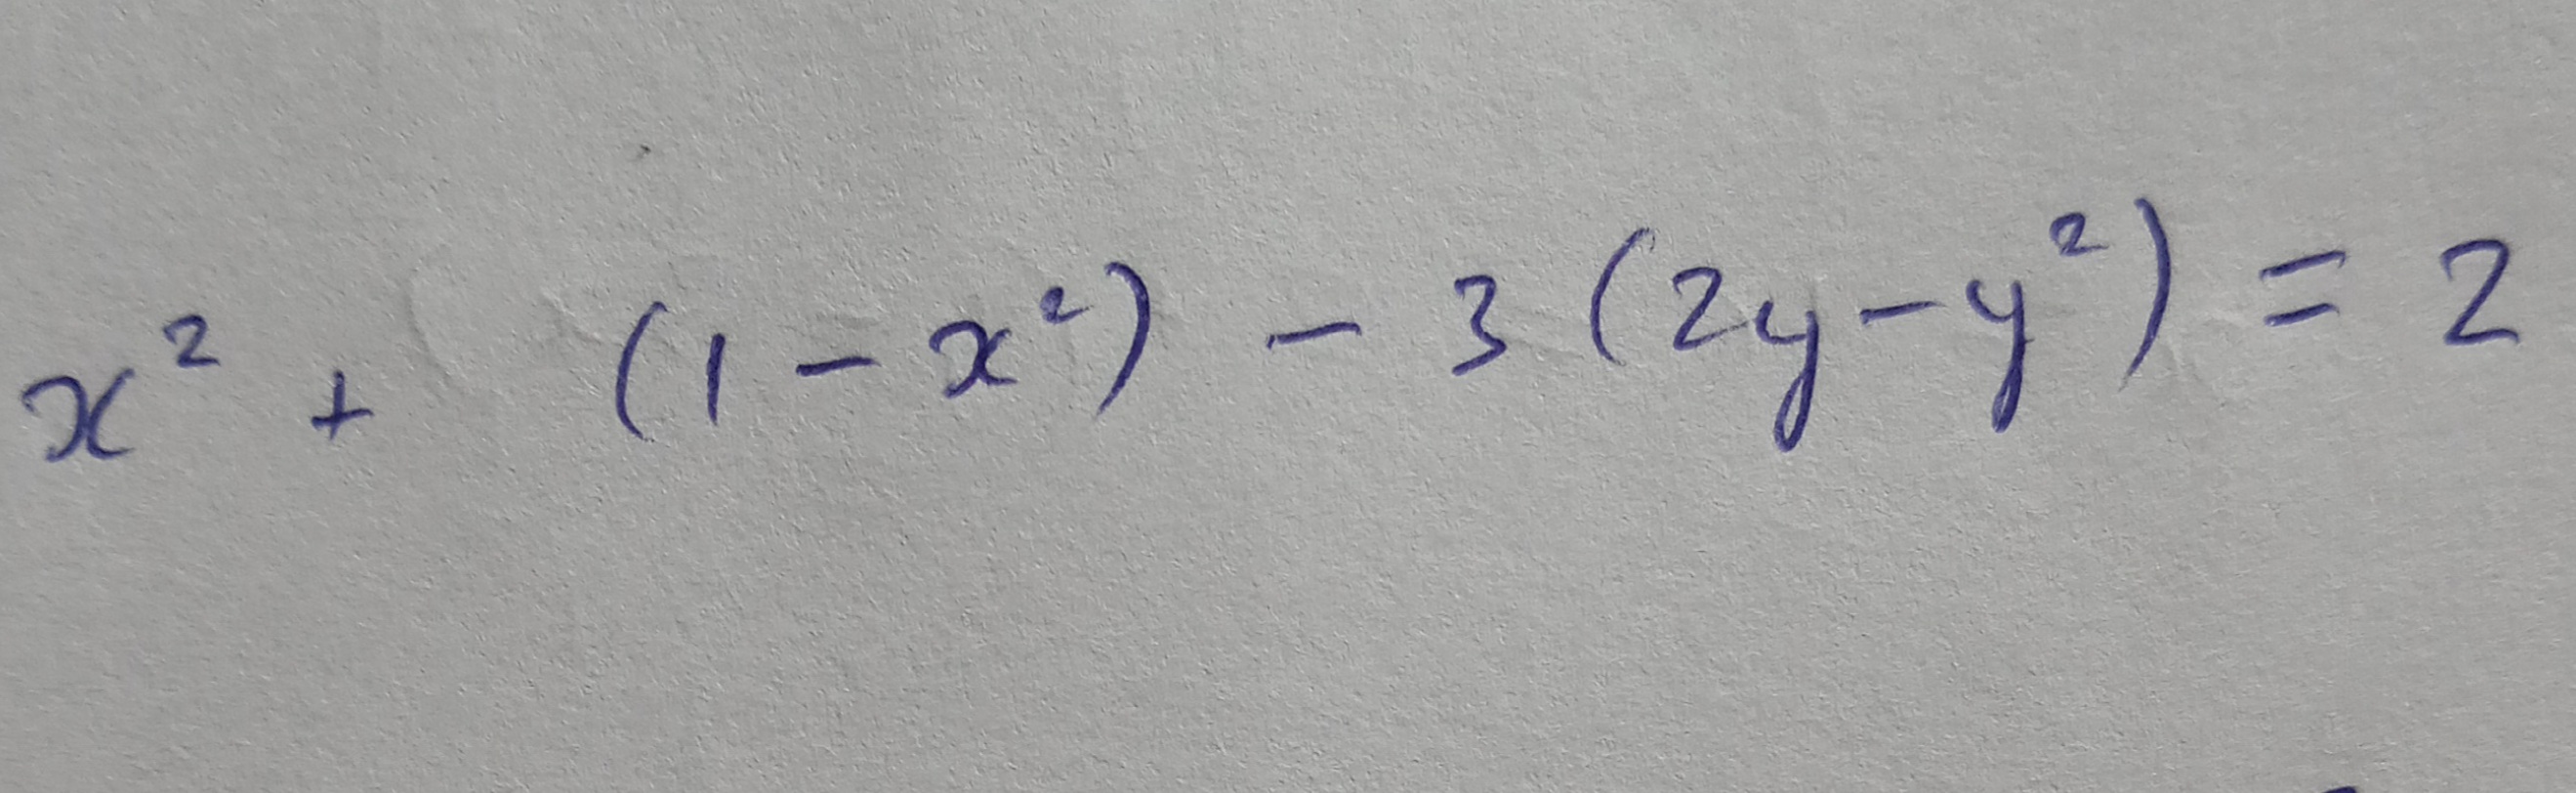 x² + (1 - x²) - 3 (2y - y²) = 2